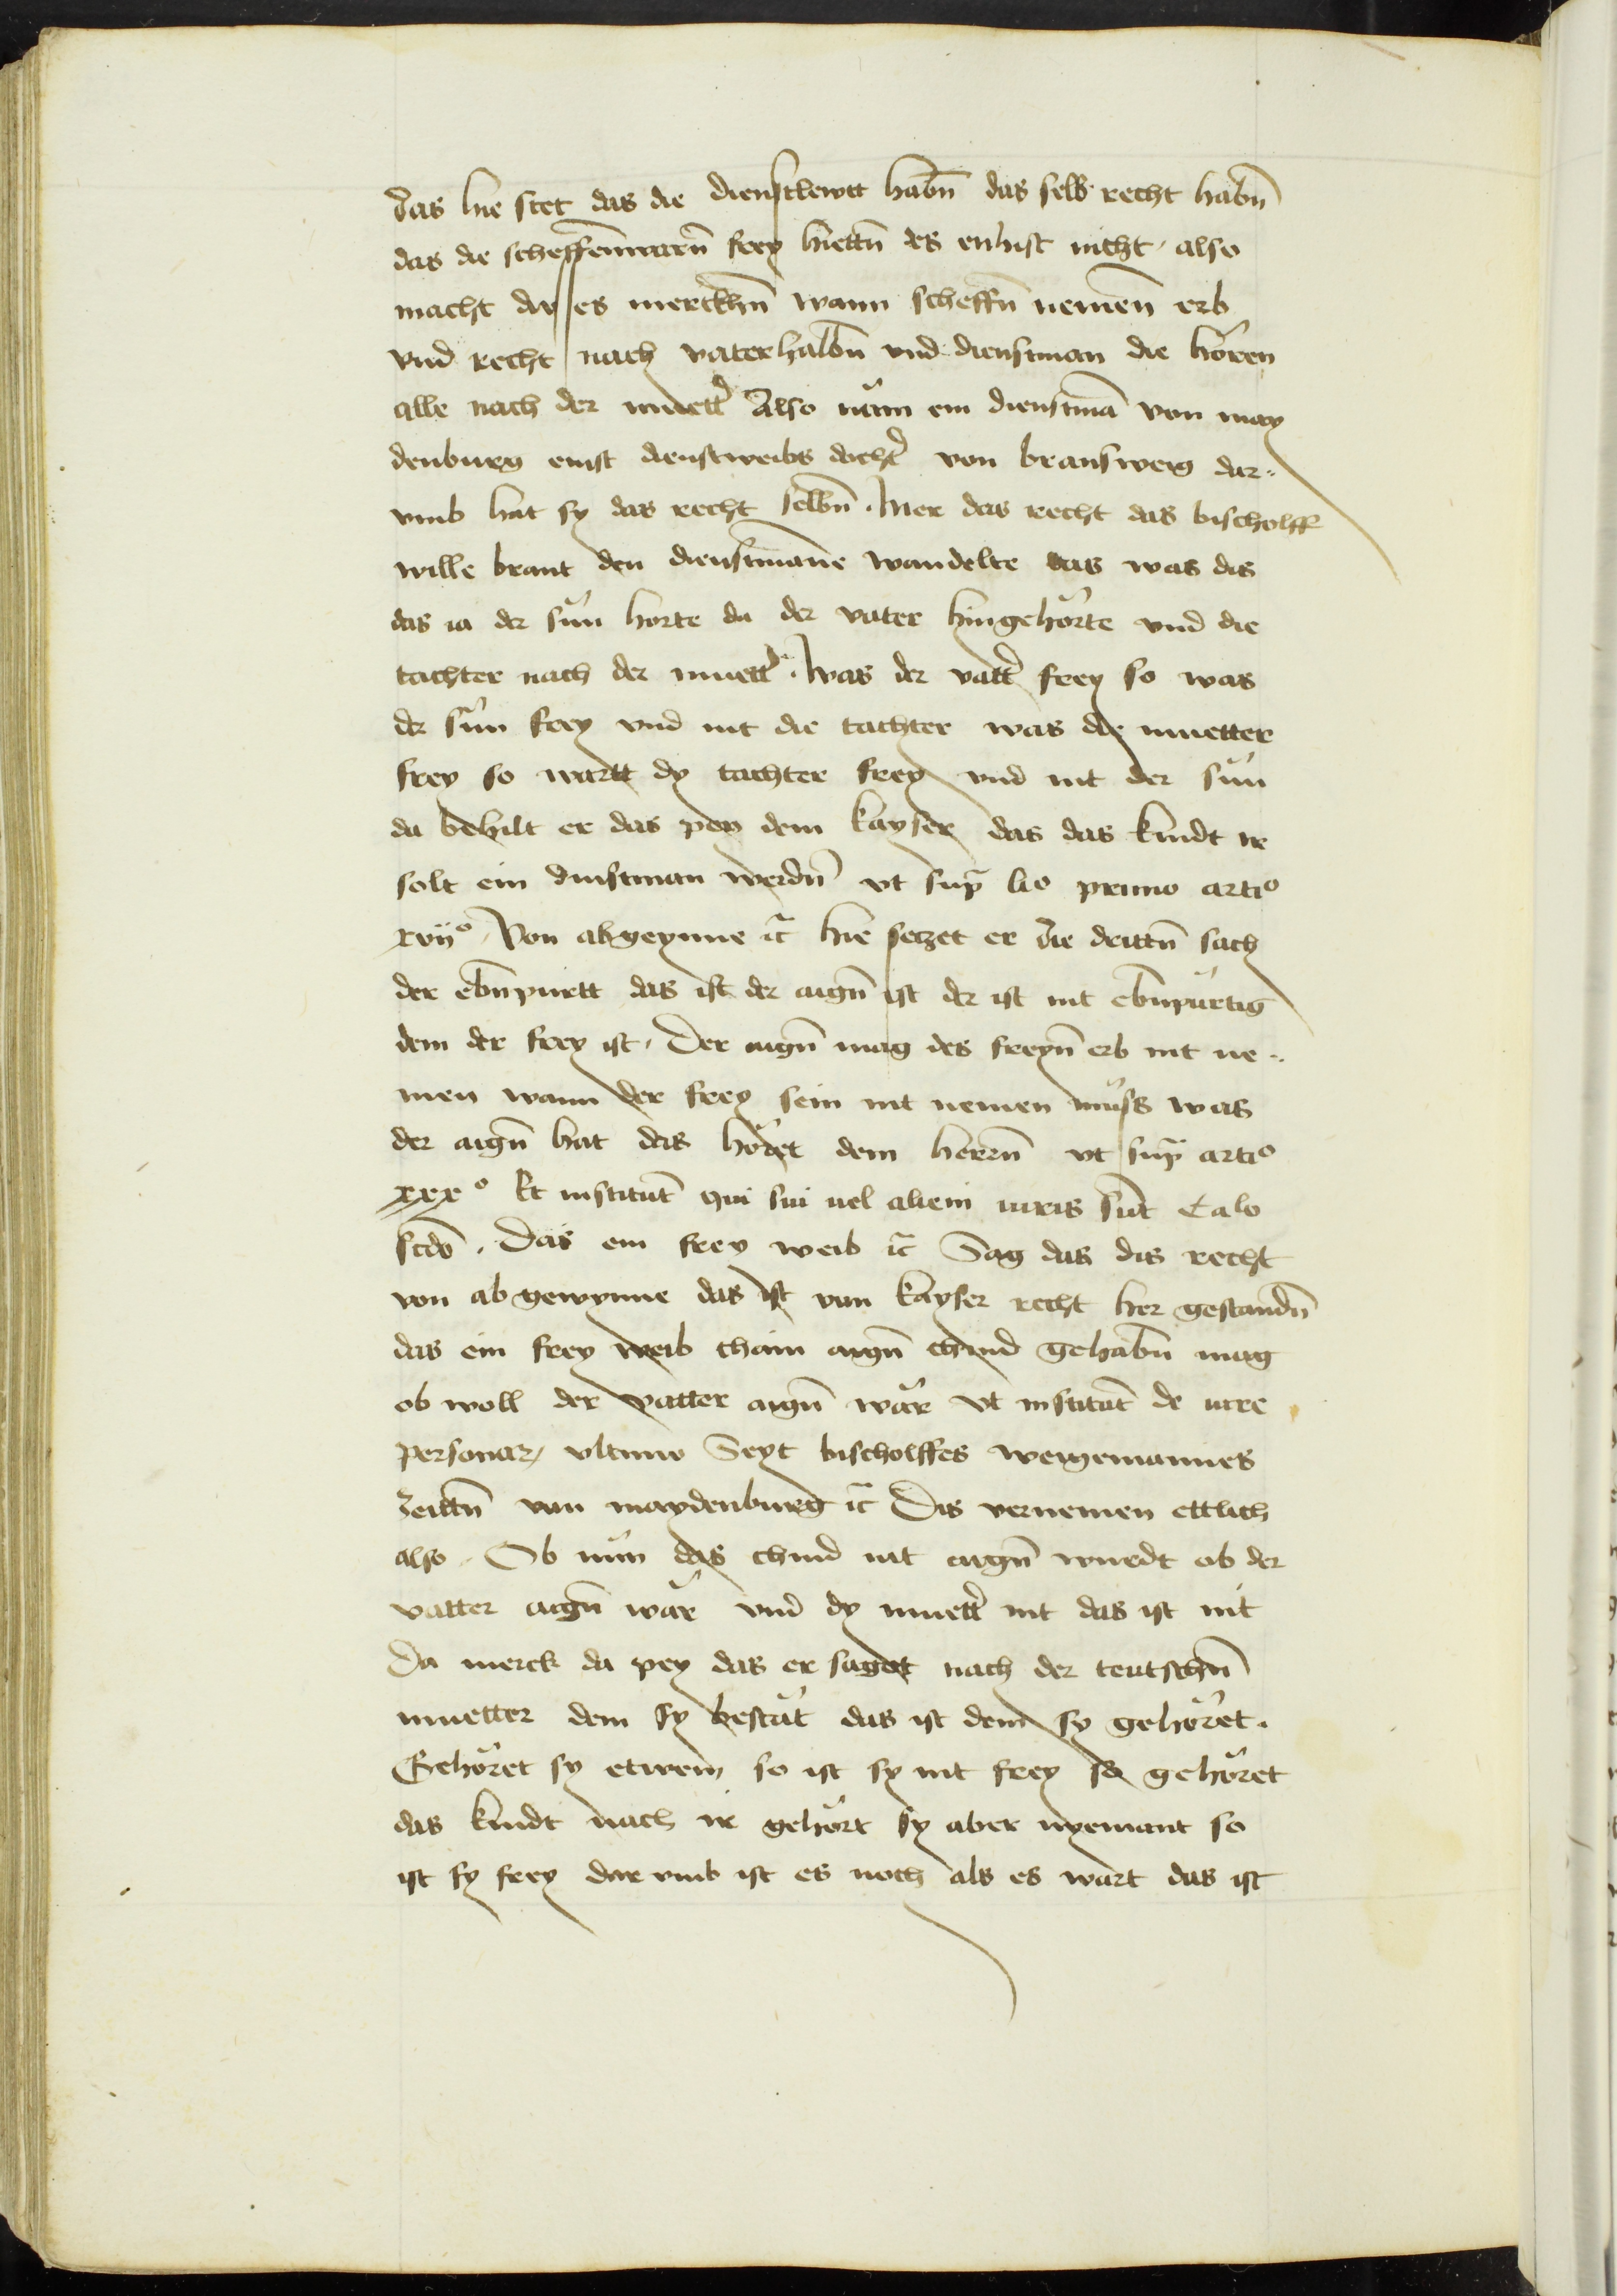 das hie stet das die dienstlewtt habn̄ das selb recht habn̄
das die scheffennwarn̄ frey hiettn̄ des enhist nicht · also
macht du es merckhn̄ wann scheffn̄ nemen̄ erb
vnd recht nach vaterhalbn̄ vnd dienstman die hören
alle nach der muett͛ Also nam ein dienstma͞ von may
denburg einst dienstweibs docht͛ von branswerg dar⸗
vmb hat sy das recht selbn̄ · Aber das recht das bischolff
wille brant den dienstman̄e wandelte das was das
das ia der sun horte da der vater hingehörte vnd die
tachter nach der muett͛ · was der vatt͛ frey so was
dr sun frey vnd nit die tachter was die muetter
frey so wartt dy tachter frey vnd nit der sun
da behilt er das pey dem kayser das das kindt ir
solt ein dinstman werdn̄ vt sup͛ li° primo arti°
xvij° · Von abgeynne ꝛc̄ hie setzet er die drittn̄ sach
der ebn̄purtt das ist der aign̄ ist der ist nit ebn̄pürtig
dem der frey ist · Der aign̄ mag des freyn̄ erb nit ne⸗
men wann der frey sein nit nemen muss was
der aign̄ hat das höret dem herrn̄ vt sup͛ arti°
xxx° Et institut͛ qui sui uel alieni iuris sūt Calo
scd̄o · Das ein frey weib ꝛc̄ Sag das dis recht
von abgewynne das ist von kayser recht her gestandn̄
das ein frey weib chain aign̄ chind gehabn̄ mag
ob woll der vatter aign̄ wär vt institut͛ de iure
personar, vltimo Seyt bischolffes weigemannes
zeittn̄ von maydenburg ꝛc̄ Dis vernemen ettlich
also · Ob nun das chind nit aign̄ wuedt ob der
vatter aign̄ wär vnd dy muett͛ nit das ist nit
Da merck da pey das er saget nach der teutschn̄
muetter dem sy bestät das ist dem sy gehöret ·
Gehöret sy etwem so ist sy nit frey so gehöret
das kindt nach ir gehört sy aber nyemant so
ist sy frey dar vmb ist es noch als es wart das ist